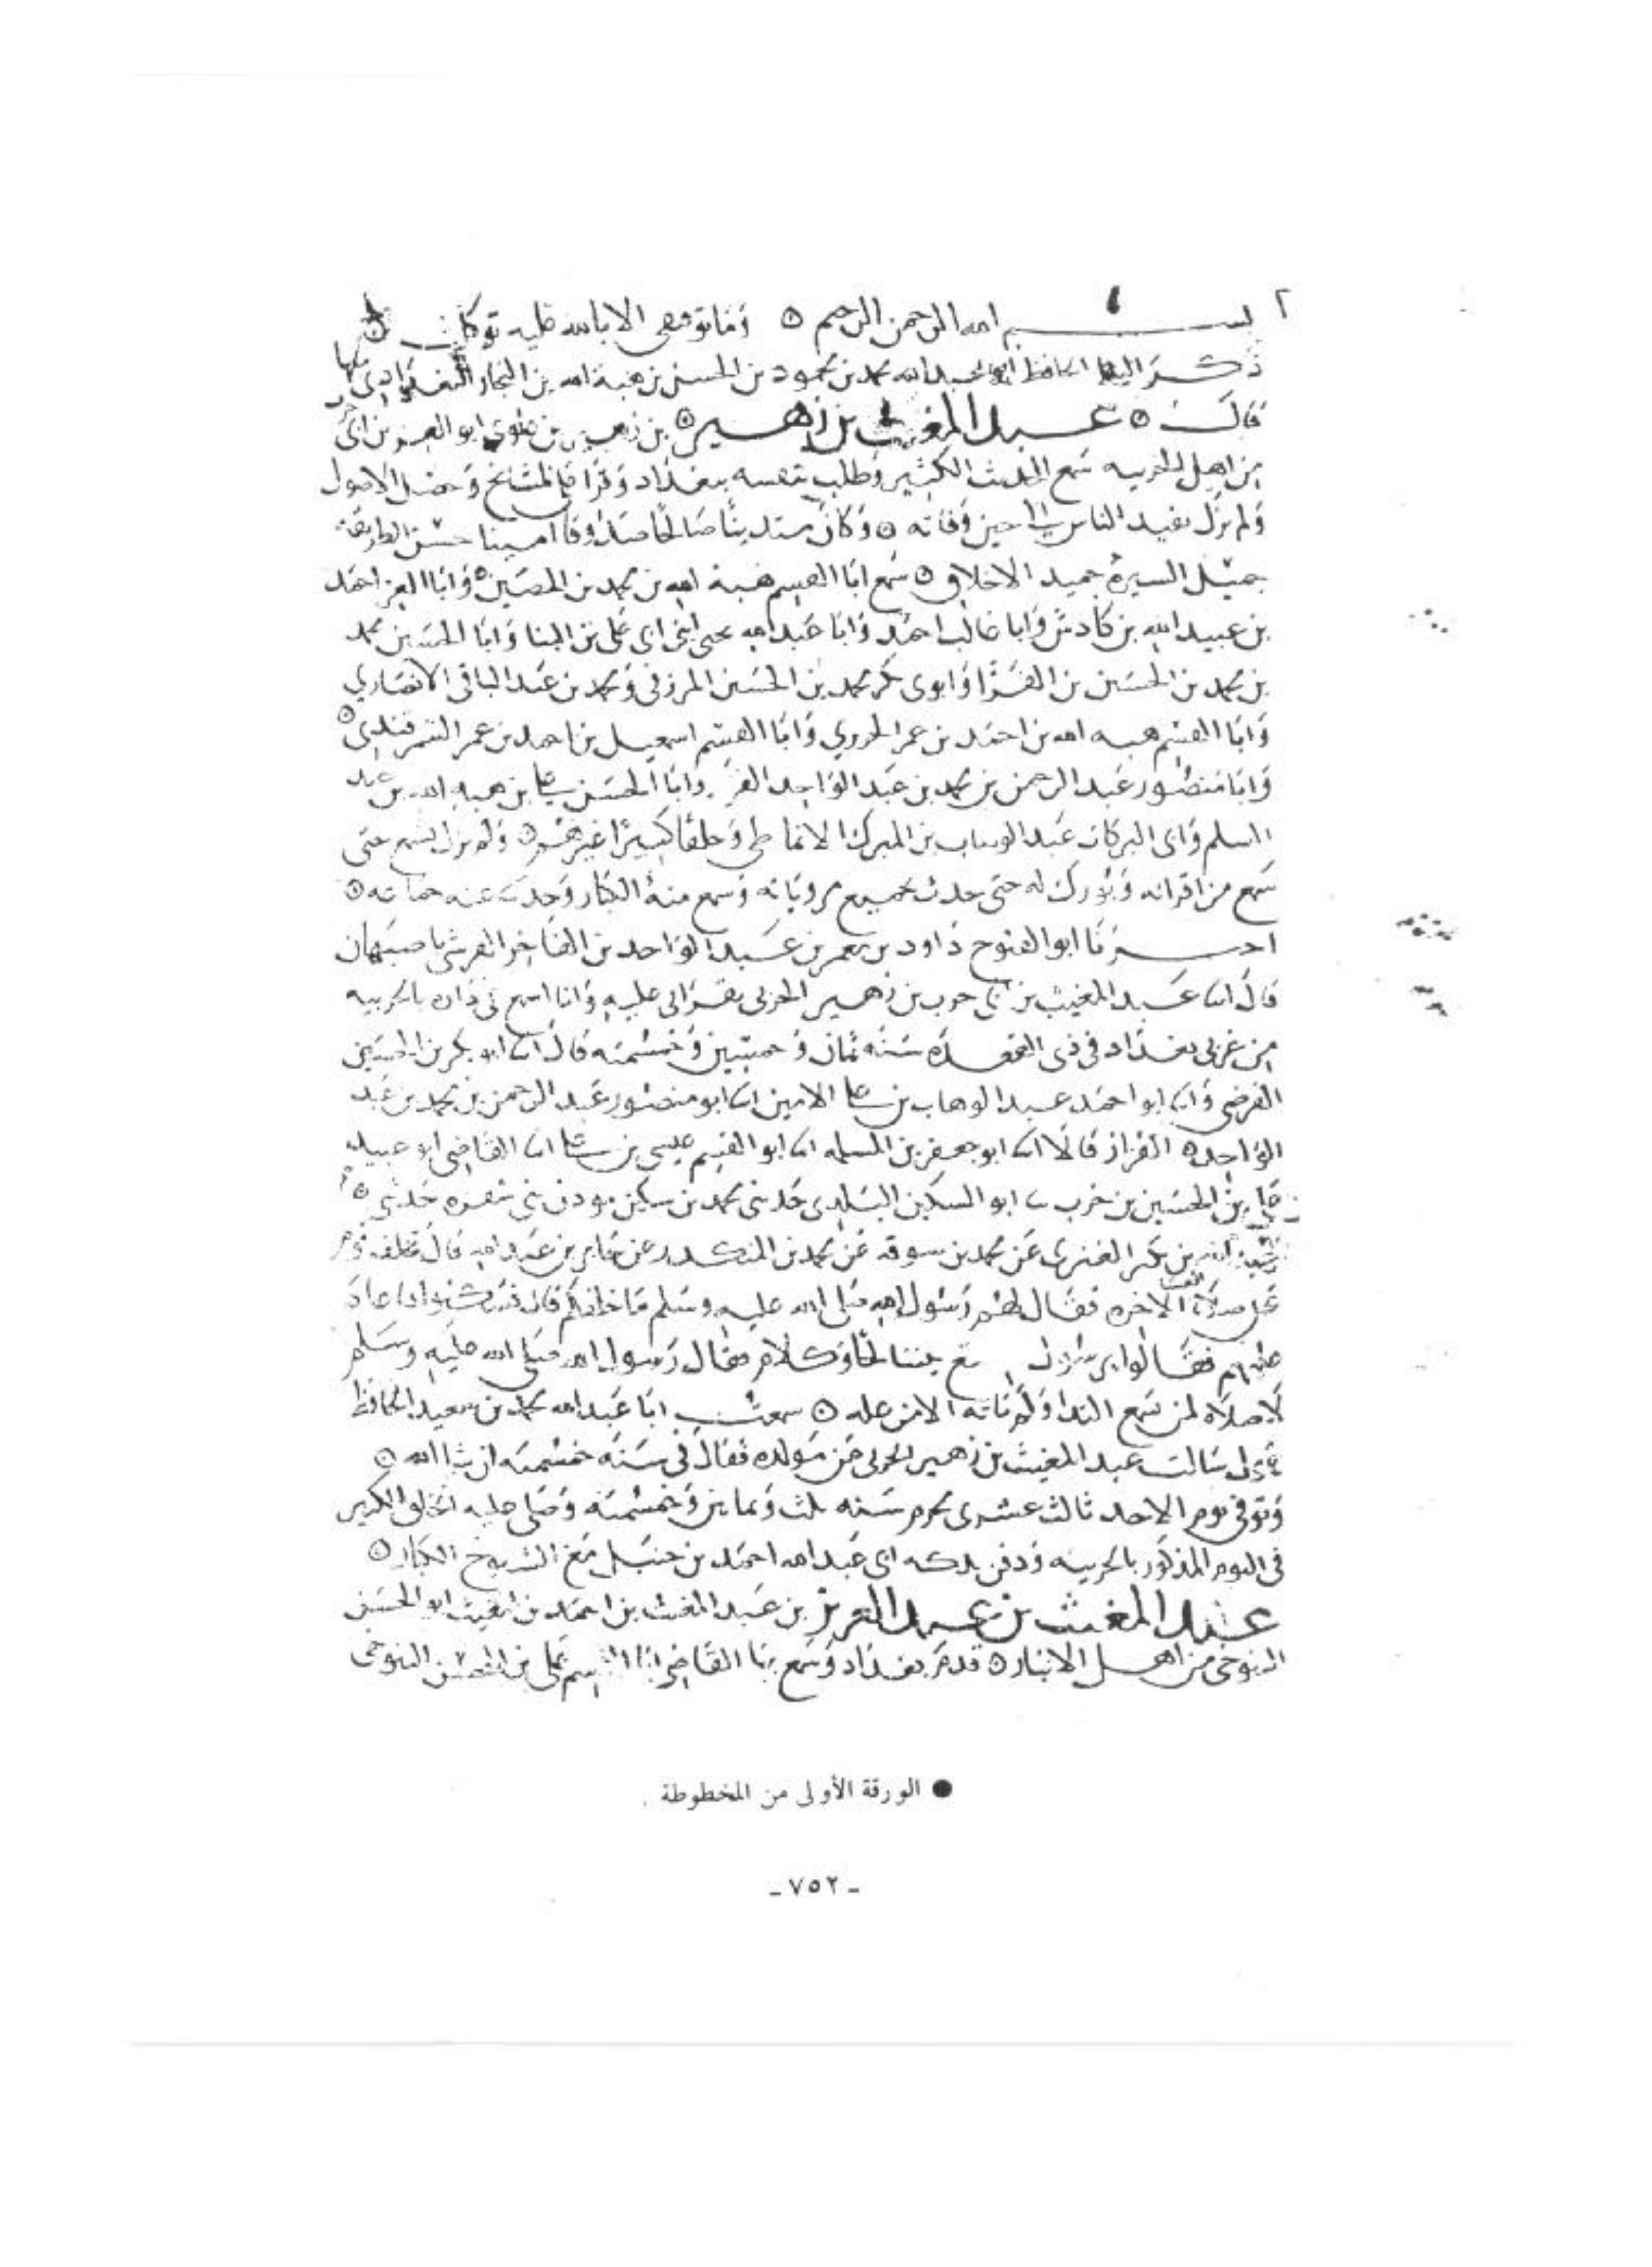 ٢ بسم الله الرحمن الرحيم ٥ وما توفيقي الا بالله عليه توكلت
ذكر الحافظ ابو عبد الله محمد بن محمود بن الحسن بن هبة الله بن النجار البغدادي
قال ٥ عبد المغيث بن زهير ٥ بن زهير بن علوي ابو العز بن ابي حرب
من اهل الحربيه سمع الحديث الكثير وطلب بنفسه ببغداد وقرا على المشايخ وحصل الاصول
ولم يزل يفيد الناس الى حين وفاته ٥ وكان متدينا صالحا صدوقا امينا حسن الطريقة
جميل السيرة حميد الاخلاق ٥ سمع ابا القسم هبة الله بن محمد بن الحصين ٥ وابا العز احمد
بن عبيد الله بن كادش وابا غالب احمد وابا عبد الله يحيى ابني ابي علي بن البنا وابا الحسين محمد
بن محمد بن الحسين بن الفرا وابوي بكر محمد بن الحسين المزرفي ومحمد بن عبد الباقي الانصاري
وابا القسم هبه الله بن احمد بن عمر الحريري وابا القسم اسمعيل بن احمد بن عمر السمرقندي ٥
وابا منصور عبد الرحمن بن محمد بن عبد الواحد القزاز وابا الحسن علي بن هبه الله بن عبد
السلم وابي البركات عبد الوهاب بن المبرك الانماطي وخلقا كبيرا غيرهم ٥ ولم يزل يسمع حتى
سمع من اقرانه وبورك له حتى حدث بجميع مروياته وسمع منه الكبار وحدث عنه جماعه ٥
اخبرنا ابو الفتوح داود بن معمر بن عبد الواحد بن الفاخر القرشي باصبهان
قال انا عبد المغيث بن ابي حرب بن زهير الحربي بقراتي عليه وانا اسمع في داره بالحربيه
من غربي بغداد في ذي القعدة سنة ثمان وخمسين وخمسمئه قال انا ابو بكر بن الحسين
الفرضي وانا ابو احمد عبد الوهاب بن علي الامين انا ابو منصور عبد الرحمن بن محمد بن عبد
الواحد ٥ القزاز قالا انا ابو جعفر بن المسلمه انا ابو القسم عيسى بن علي انا القاضي ابو عبيد
علي بن الحسين بن حرب نا ابو السكين البلدي حدثني محمد بن سكين مؤذن بني شقره حدثني ٥
عبد الله بن بكير الغنوي عن محمد بن سوقه عن محمد بن المنكدر عن جابر بن عبد الله قال تخلف قوم
عن صلاة العشاء الاخره فقال لهم رسول الله صلى الله عليه وسلم ما خلفكم قال فسكتوا فاعاد
عليهم فقالوا يرسول بيننا لحا وكلام فقال رسول الله صلى الله عليه وسلم
لا صلاة لمن سمع الندا ولم ياته الا من عله ٥ سمعت ابا عبد الله محمد بن سعيد الحافظ
يقول سالت عبد المغيث بن زهير الحربي عن مولده فقال في سنة خمسمئه ان شا الله ٥
وتوفي يوم الاحد ثالث عشري محرم سنه ثلث وثمانين وخمسمئة وصلى عليه الخلق الكثير
في اليوم المذكور بالحربيه ودفن بدكه ابي عبد الله احمد بن حنبل مع الشيوخ الكبار ٥
عبد المغيث بن عبد العزيز بن عبد المغيث بن احمد بن المغيث ابو الحسن
التنوخي من اهل الانبار ٥ قدم بغداد وسمع بها القاضي ابا القسم علي بن المحسن التنوخي
● الورقة الأولى من المخطوطة .
- ٧٥٢ -